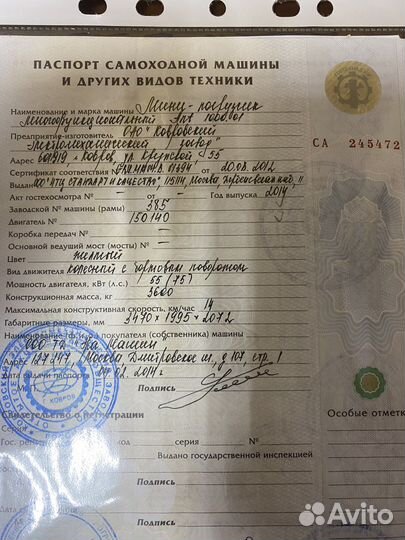 ПАСПОРТ САМОХОДНОЙ МАШИНЫ
И ДРУГИХ ВИДОВ ТЕХНИКИ
Наименование и марка машины Мини-погрузчик
многофункциональный Ant 1000.01
Предприятие-изготовитель ОАО "Ковровский
электромеханический завод"
СА 245472
Адрес 601919 г. Ковров, ул. Крупской 55
Сертификат соответствия от 20.08.2012
Выдан ООО "НТЦ СТАНДАРТ И КАЧЕСТВО", 115114, Москва,
Акт гостехосмотра № — от — Год выпуска 2014
Заводской № машины (рамы) 385
Двигатель № 150140
Коробка передач № —
Основной ведущий мост (мосты) № —
Цвет желтый
Вид движителя колесный с бортовым поворотом
Мощность двигателя, кВт (л.с.) 55 (75)
Конструкционная масса, кг 3600
Максимальная конструктивная скорость, км/час 14
Габаритные размеры, мм 3470 x 1995 x 2072
покупателя (собственника) машины
ООО
Адрес Москва, Дмитровское ш, д 107, стр. 1
Дата выдачи паспорта 02.2014 г
М.П. Подпись
Свидетельство о регистрации
Особые отметки
серия №
Гос. серия №
Выдано государственной инспекцией
Подпись
Подпись
КОВРОВ
Avito